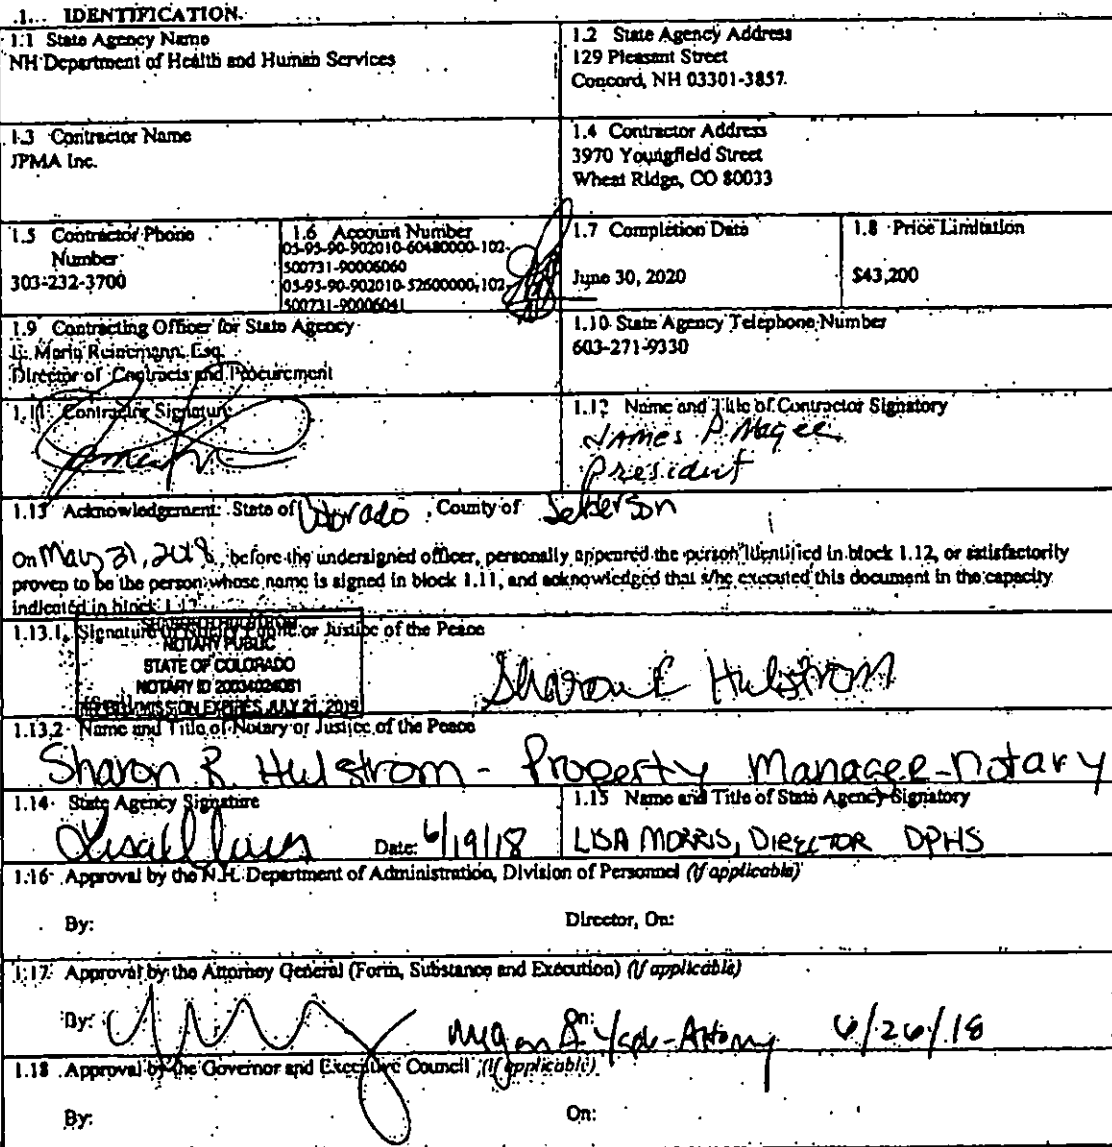 1. IDENTIFICATION.
1.1 State Agency Name
NH Department of Health and Human Services
1.2 State Agency Address
129 Pleasant Street
Concord, NH 03301-3857
1.3 Contractor Name
JPMA Inc.
1.4 Contractor Address
3970 Youngfield Street
Wheat Ridge, CO 80033
1.5 Contractor Phone
Number
303-232-3700
1.6 Account Number
05-95-90-902010-60480000-102-
500731-90006060
05-95-90-902010-52600000-102-
500731-90006041
1.7 Completion Date
June 30, 2020
1.8 Price Limitation
$43,200
1.9 Contracting Officer for State Agency
E. Maria Reinemann, Esq.
Director of Contracts and Procurement
1.10 State Agency Telephone Number
603-271-9330
1.11 Contractor Signature
1.12 Name and Title of Contractor Signatory
James P. Magee
President
1.13 Acknowledgement: State of Colorado, County of Jefferson
On May 31, 2018, before the undersigned officer, personally appeared the person identified in block 1.12, or satisfactorily
proven to be the person whose name is signed in block 1.11, and acknowledged that s/he executed this document in the capacity
indicated in block 1.12.
1.13.1 Signature of Notary Public or Justice of the Peace
NOTARY PUBLIC
STATE OF COLORADO
NOTARY ID 20034024081
COMMISSION EXPIRES JULY 21, 2019
Sharon R Hulstrom
1.13.2 Name and Title of Notary or Justice of the Peace
Sharon R. Hulstrom - Property Manager - notary
1.14 State Agency Signature
Date: 6/19/18
1.15 Name and Title of State Agency Signatory
LISA MORRIS, DIRECTOR DPHS
1.16 Approval by the N.H. Department of Administration, Division of Personnel (if applicable)
By: Director, On:
1.17 Approval by the Attorney General (Form, Substance and Execution) (if applicable)
By: On: Megan A. - Attorney 6/26/18
1.18 Approval by the Governor and Executive Council (if applicable)
By: On: